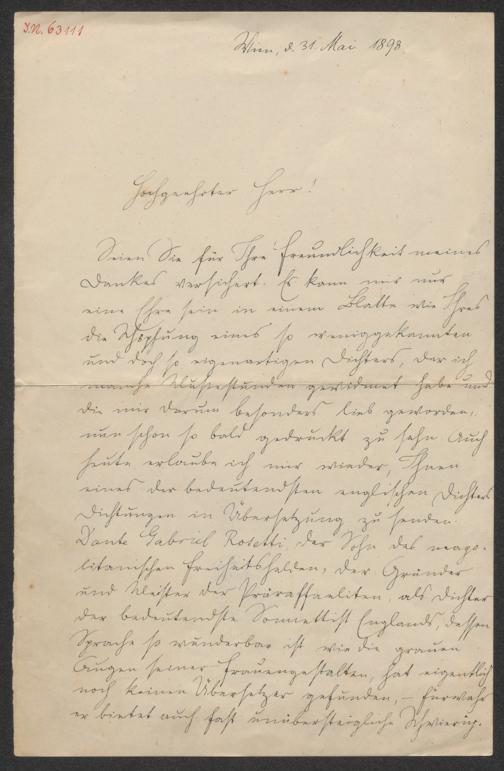 J.N. 63111
Wien, d. 31. Mai 1898.
Hochgeehrter Herr!
Seien Sie für Ihre Freundlichkeit meines
Dankes versichert. Es kann mir nur
eine Ehre sein in einem Blatte wie Ihres
die Schöpfung eines so weniggekannten
und doch so eigenartigen Dichters, der ich
manche Mußestunden gewidmet habe und
die mir darum besonders lieb geworden,
nun schon so bald gedruckt zu sehn. Auch
heute erlaube ich mir wieder, Ihnen
eines der bedeutendsten englischen Dichters
Dichtungen in Übersetzung zu senden.
Dante Gabriel Rosetti, der Sohn des neapo-
litanischen Freiheitshelden, der Gründer
und Meister der Präraffaeliten, als Dichter
der bedeutendste Sonnettist Englands, dessen
Sprache so wunderbar ist wie die grauen
Augen seiner Frauengestalten, hat eigentlich
noch keinen Übersetzer gefunden, – fürwahr
er bietet auch fast unübersteigliche Schwierig-